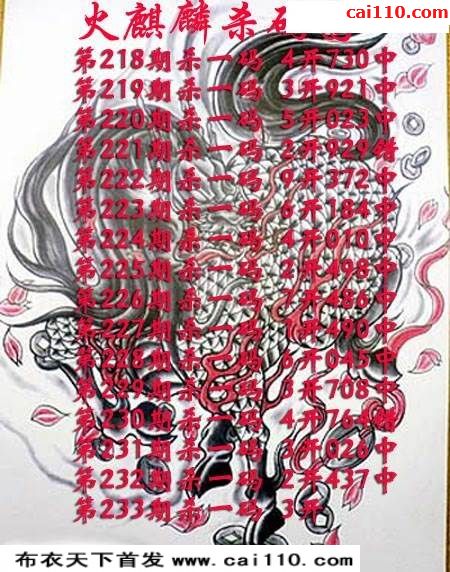 cai110.com
火麒麟杀码
第218期杀一码 4开730中
第219期杀一码 3开921中
第220期杀一码 5开023中
第221期杀一码 2开929错
第222期杀一码 9开372中
第223期杀一码 6开184中
第224期杀一码 4开010中
第225期杀一码 2开498中
第226期杀一码 7开486中
第227期杀一码 1开490中
第228期杀一码 6开045中
第229期杀一码 3开708中
第230期杀一码 4开764错
第231期杀一码 3开026中
第232期杀一码 2开437中
第233期杀一码 3开
布衣天下首发 www.cai110.com